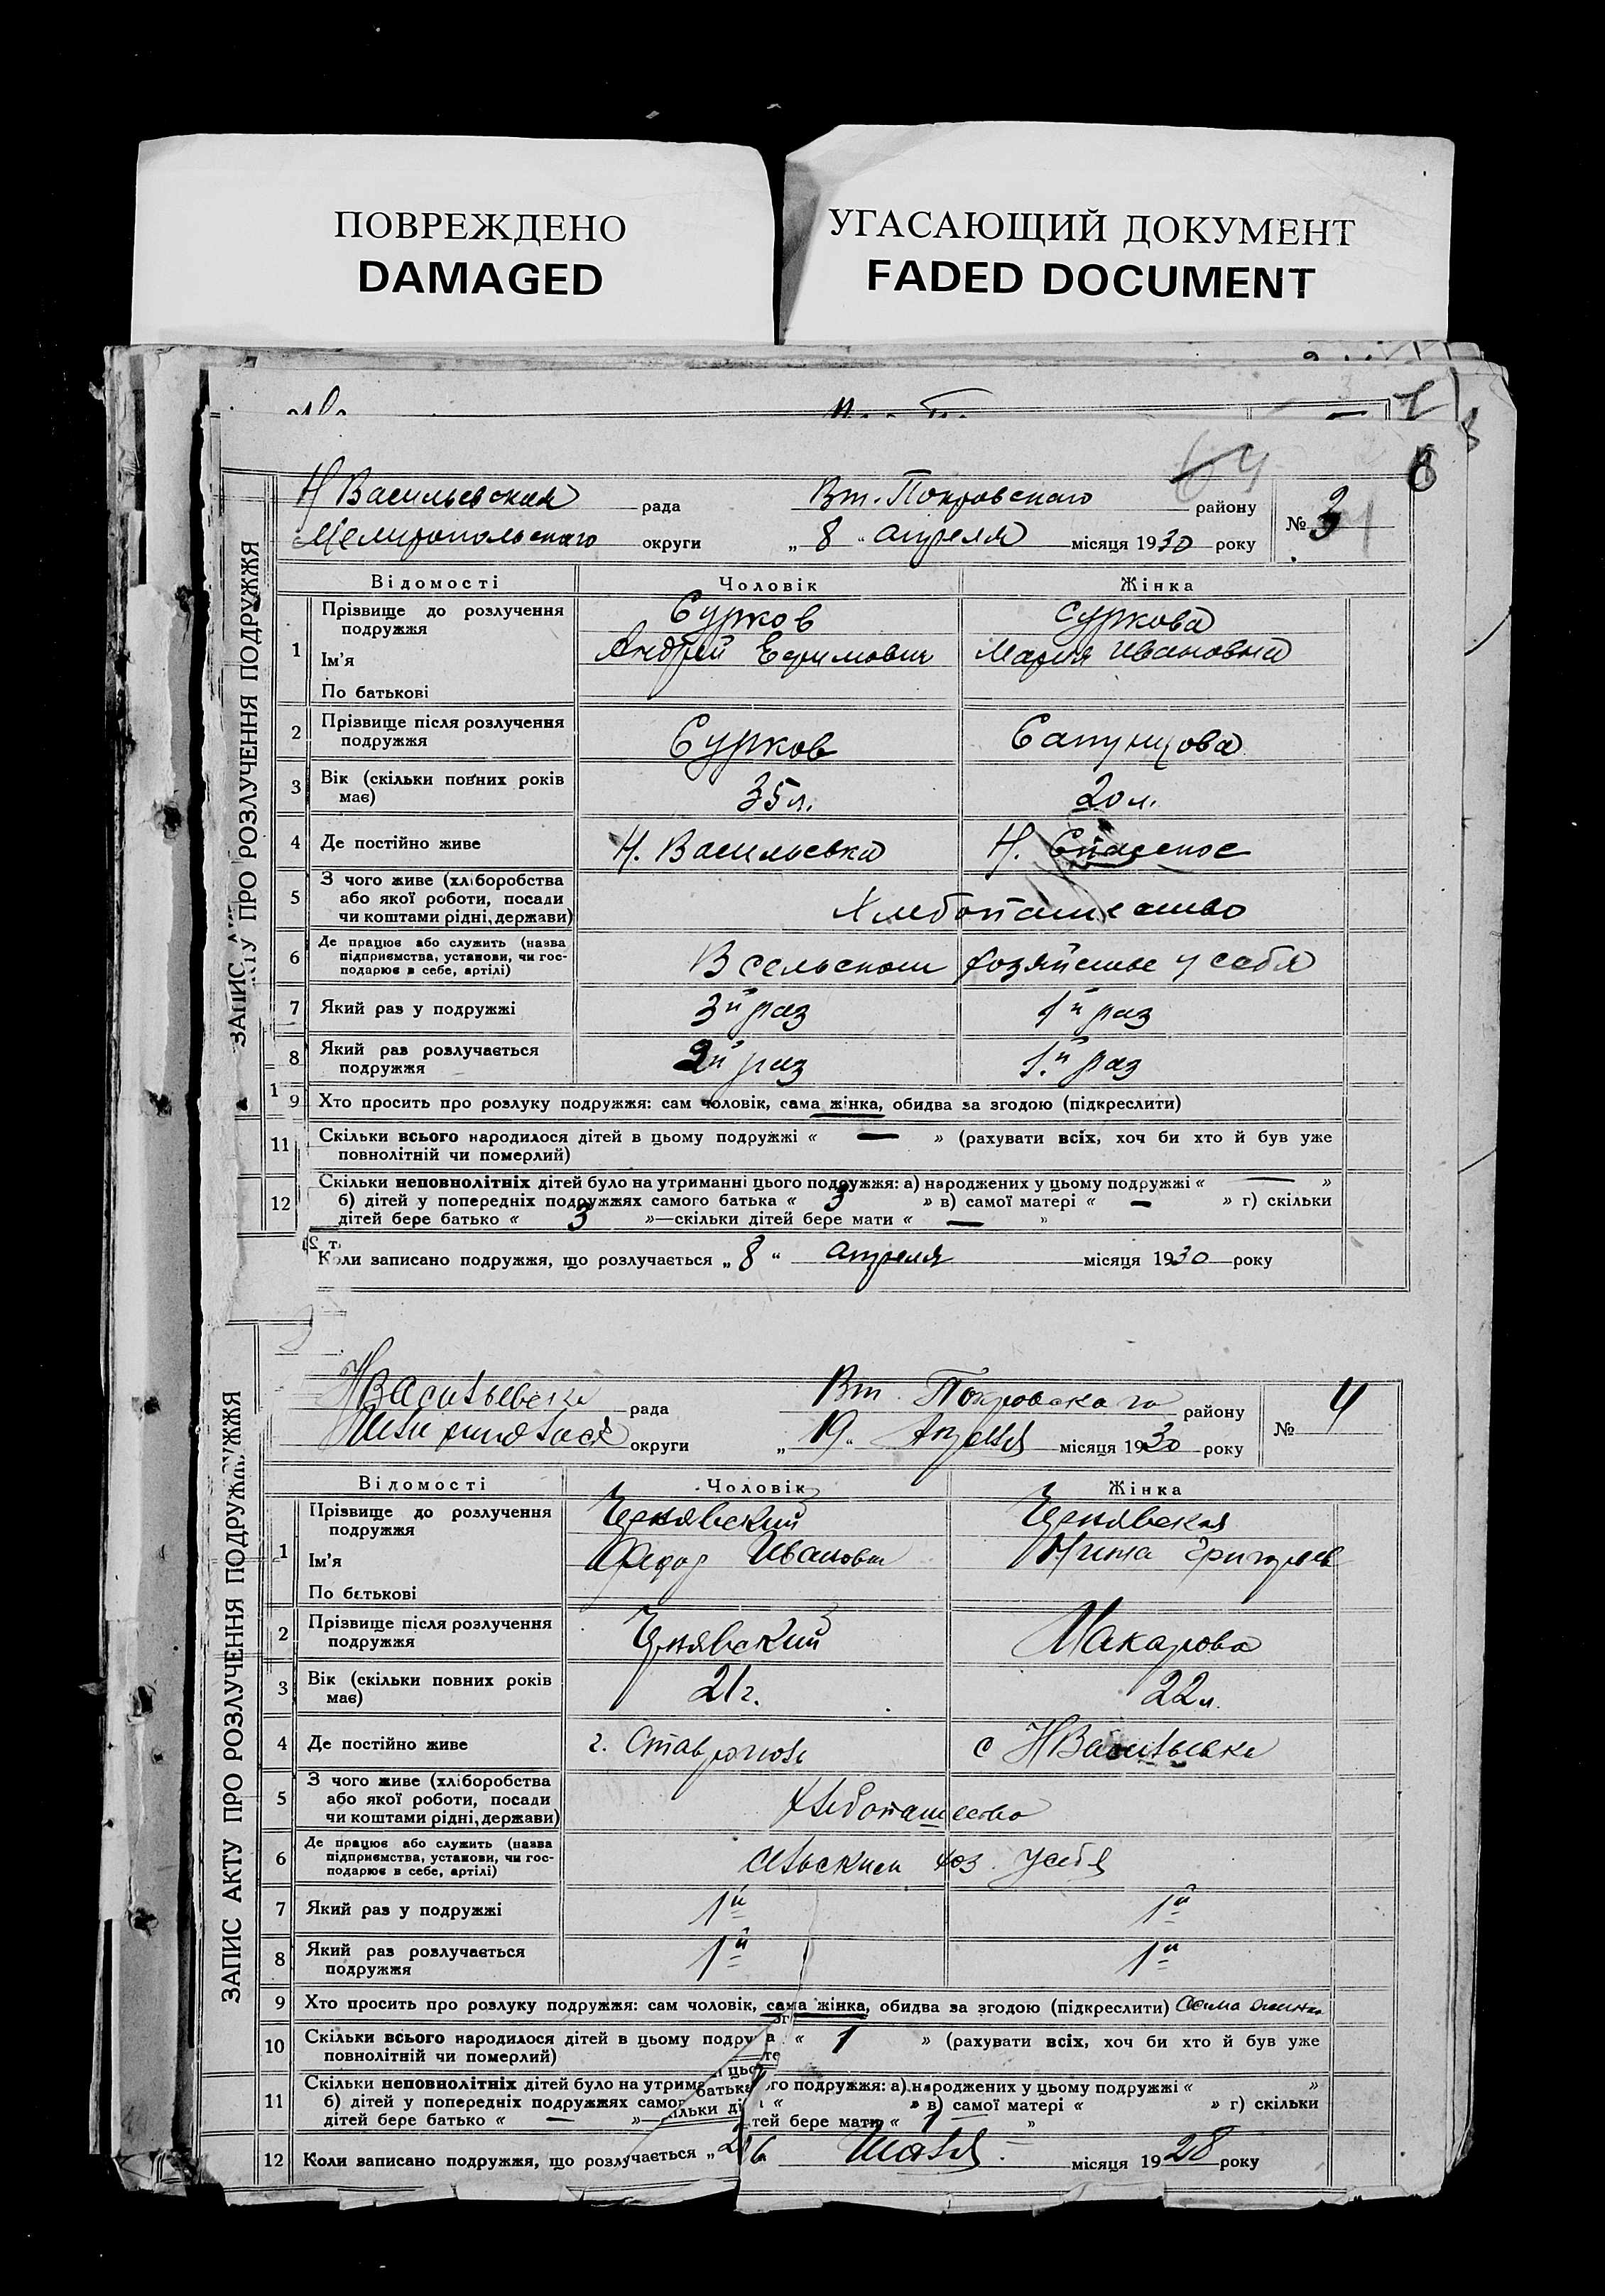 ПОВРЕЖДЕНО
DAMAGED
УГАСАЮЩИЙ ДОКУМЕНТ
FADED DOCUMENT
64
8
ЗАПИС АКТУ ПРО РОЗЛУЧЕННЯ ПОДРУЖЖЯ
Н Васильевская рада Вт. Покровскаго району № 3
Мелитопольскаго округи „ 8 “ апреля місяця 1930 року
Відомості Чоловік Жінка
1 Прізвище до розлучення подружжя Сурков Суркова
Ім'я Андрей Ефимович Мария Ивановна
По батькові
2 Прізвище після розлучення подружжя Сурков Сапунцова
3 Вік (скільки повних років має) 35 л. 20 л.
4 Де постійно живе Н. Васильевка Н. Спасское
5 З чого живе (хліборобства
або якої роботи, посади
чи коштами рідні, держави) Хлебопашество
6 Де працює або служить (назва
підприємства, установи, чи гос-
подарює в себе, артілі) В сельском хозяйстве у себя
7 Який раз у подружжі 3й раз 1й раз
8 Який раз розлучається
подружжя 2й раз 1й раз
9 Хто просить про розлуку подружжя: сам чоловік, сама жінка, обидва за згодою (підкреслити)
11 Скільки всього народилося дітей в цьому подружжі « — » (рахувати всіх, хоч би хто й був уже
повнолітній чи померлий)
12 Скільки неповнолітніх дітей було на утриманні цього подружжя: а) народжених у цьому подружжі « — »
б) дітей у попередніх подружжях самого батька « 3 » в) самої матері « — » г) скільки
дітей бере батько « 3 »—скільки дітей бере мати « — »
Коли записано подружжя, що розлучається „ 8 “ апреля місяця 1930 року
ЗАПИС АКТУ ПРО РОЗЛУЧЕННЯ ПОДРУЖЖЯ
НВасильевска рада Вт. Покровскаго району № 4
округи „ 19 “ Апреля місяця 1930 року
Відомості Чоловік Жінка
1 Прізвище до розлучення
подружжя Чернявский Чернявская
Ім'я Федор Иванович Григорьев
По батькові
2 Прізвище після розлучення
подружжя Чернявский Макарова
3 Вік (скільки повних років
має) 21 г. 22 л.
4 Де постійно живе г. Ставрополь с НВасильевка
5 З чого живе (хліборобства
або якої роботи, посади
чи коштами рідні, держави) Хлебопашество
6 Де працює або служить (назва
підприємства, установи, чи гос-
подарює в себе, артілі) сельским хоз. у себя
7 Який раз у подружжі 1й 1й
8 Який раз розлучається
подружжя 1й 1й
9 Хто просить про розлуку подружжя: сам чоловік, сама жінка, обидва за згодою (підкреслити)
10 Скільки всього народилося дітей в цьому подру « 1 » (рахувати всіх, хоч би хто й був уже
повнолітній чи померлий)
11 Скільки неповнолітніх дітей було на утрима го подружжя: а) народжених у цьому подружжі « »
б) дітей у попередніх подружжях самог батька « » в) самої матері « » г) скільки
дітей бере батько « — »—ільки ді тей бере мати « 1 »
12 Коли записано подружжя, що розлучається „ 26 місяця 1928 року